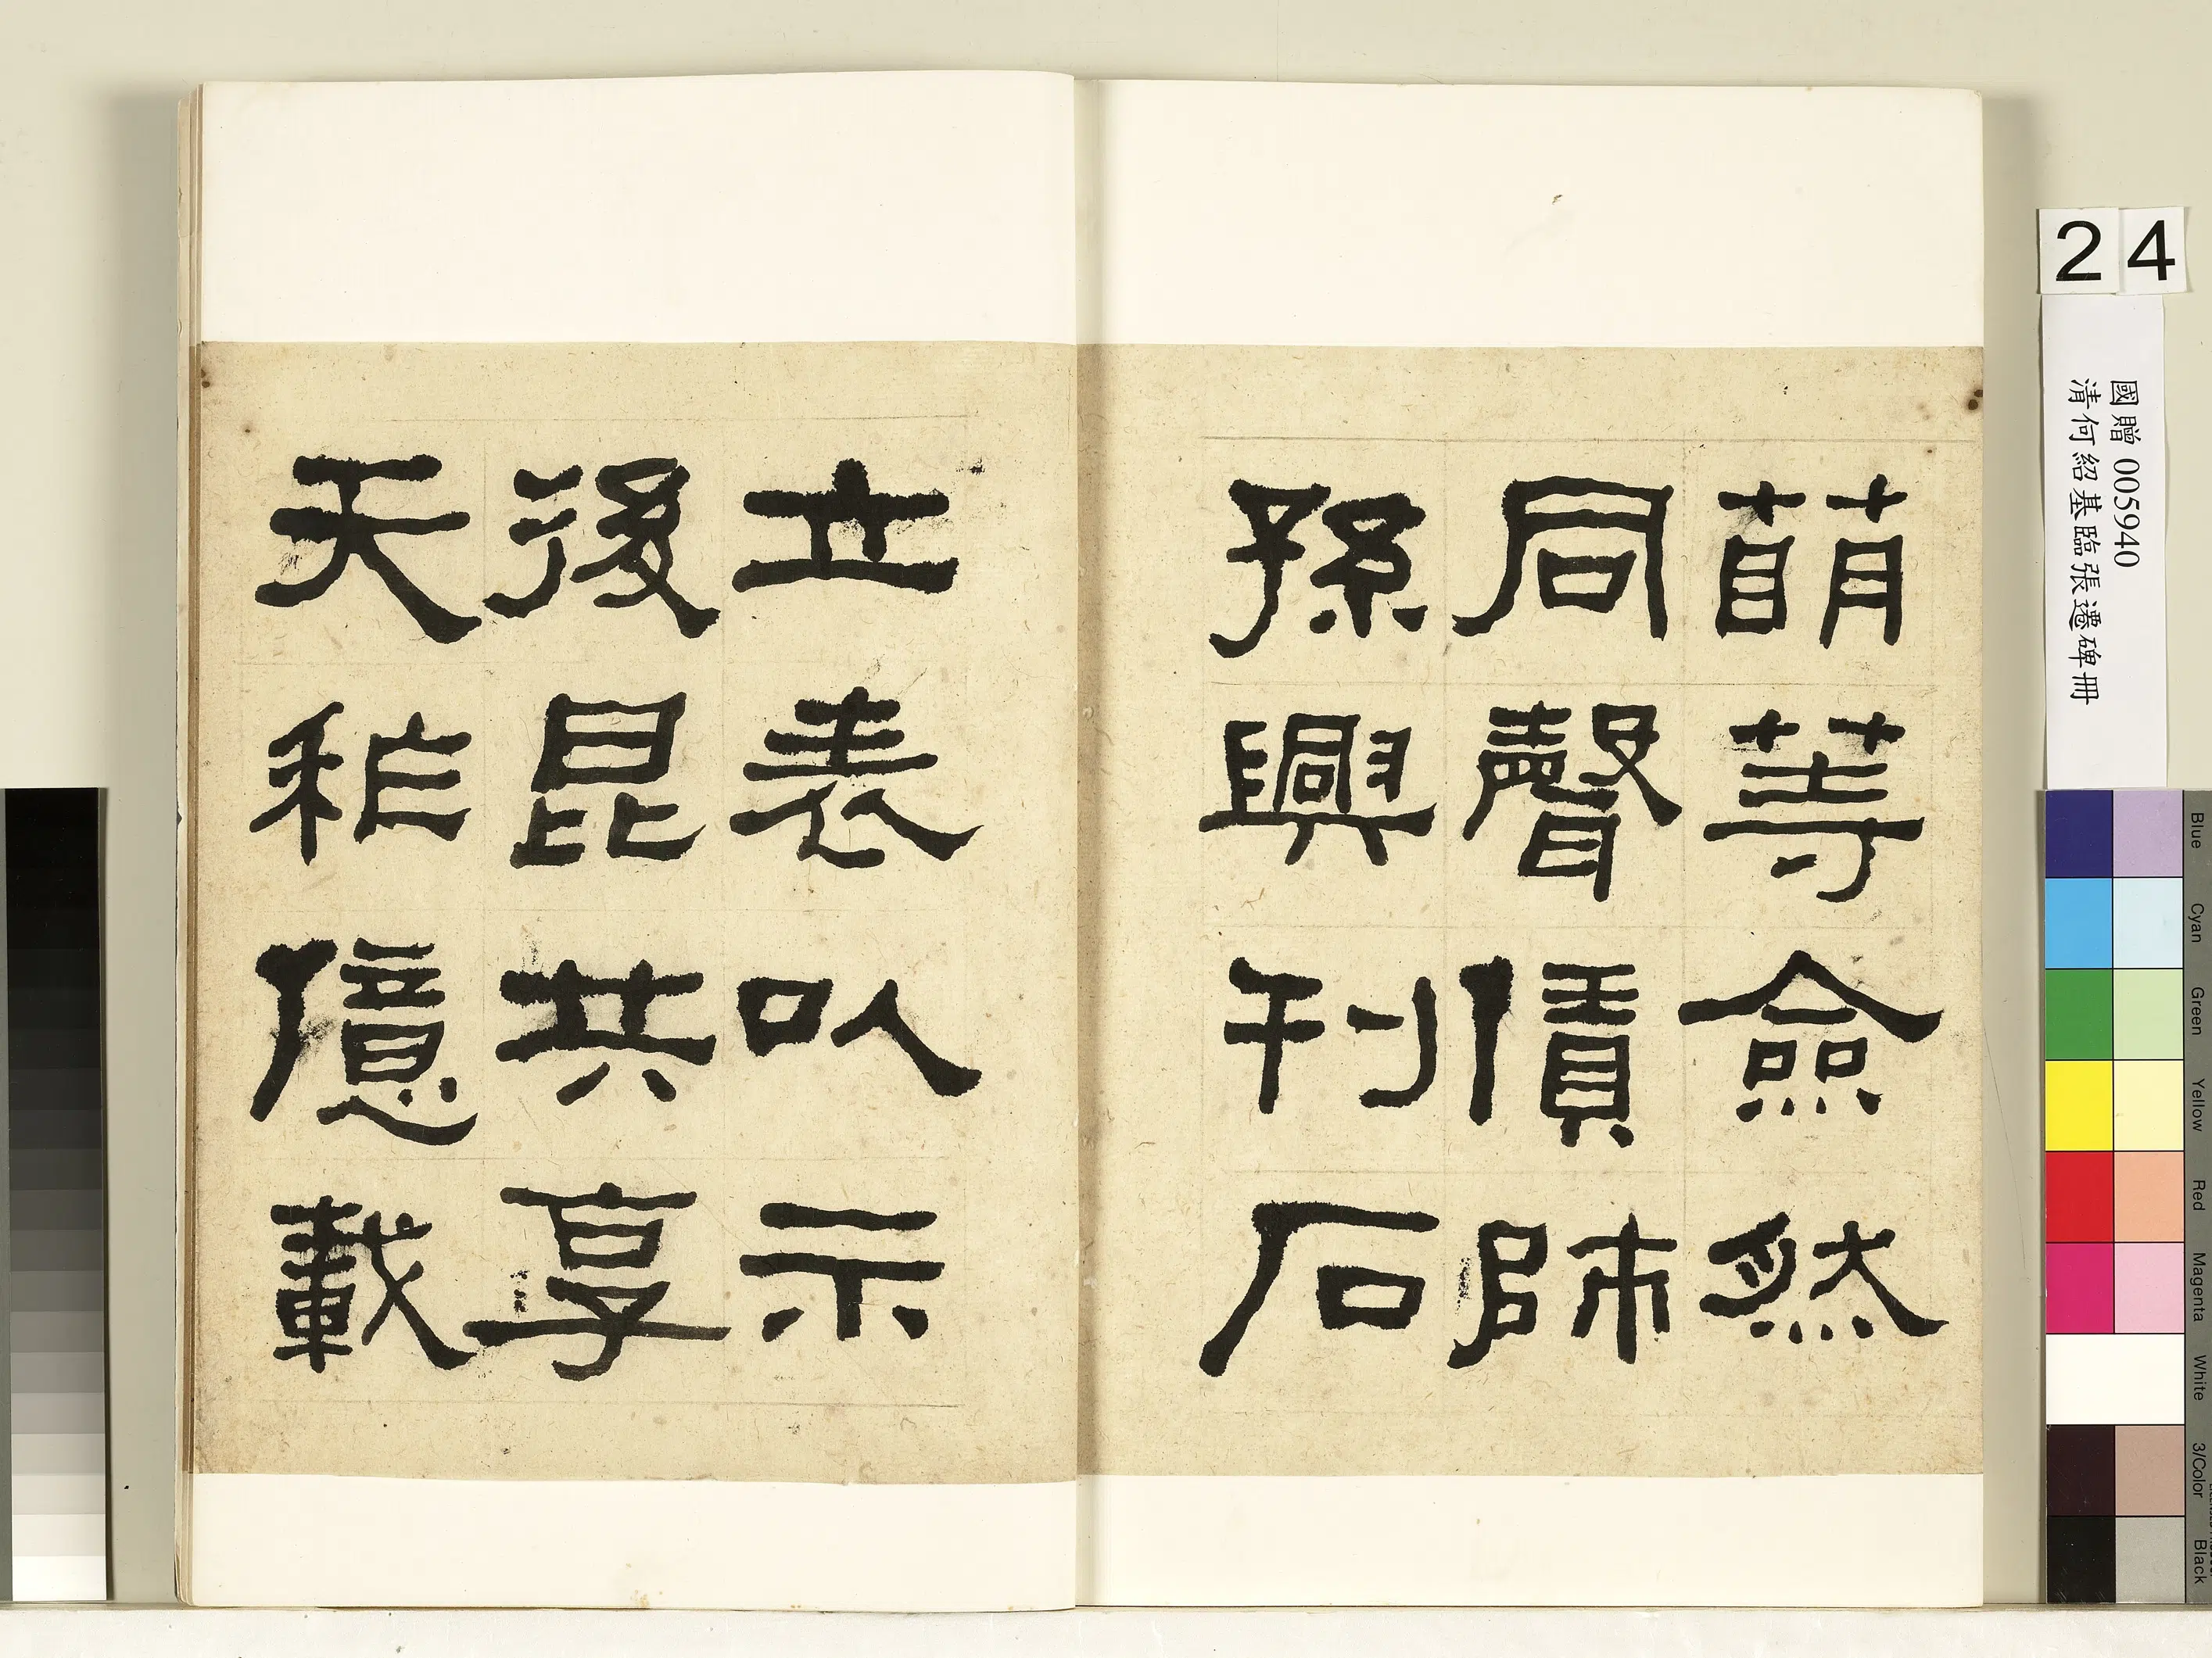 萌等僉然
同聲債師
孫興刊石
立表以示
後昆共享
天秨億載
24
國贈 005940
清何紹基臨張遷碑冊
Blue
Cyan
Green
Yellow
Red
Magenta
White
3/Color
Black